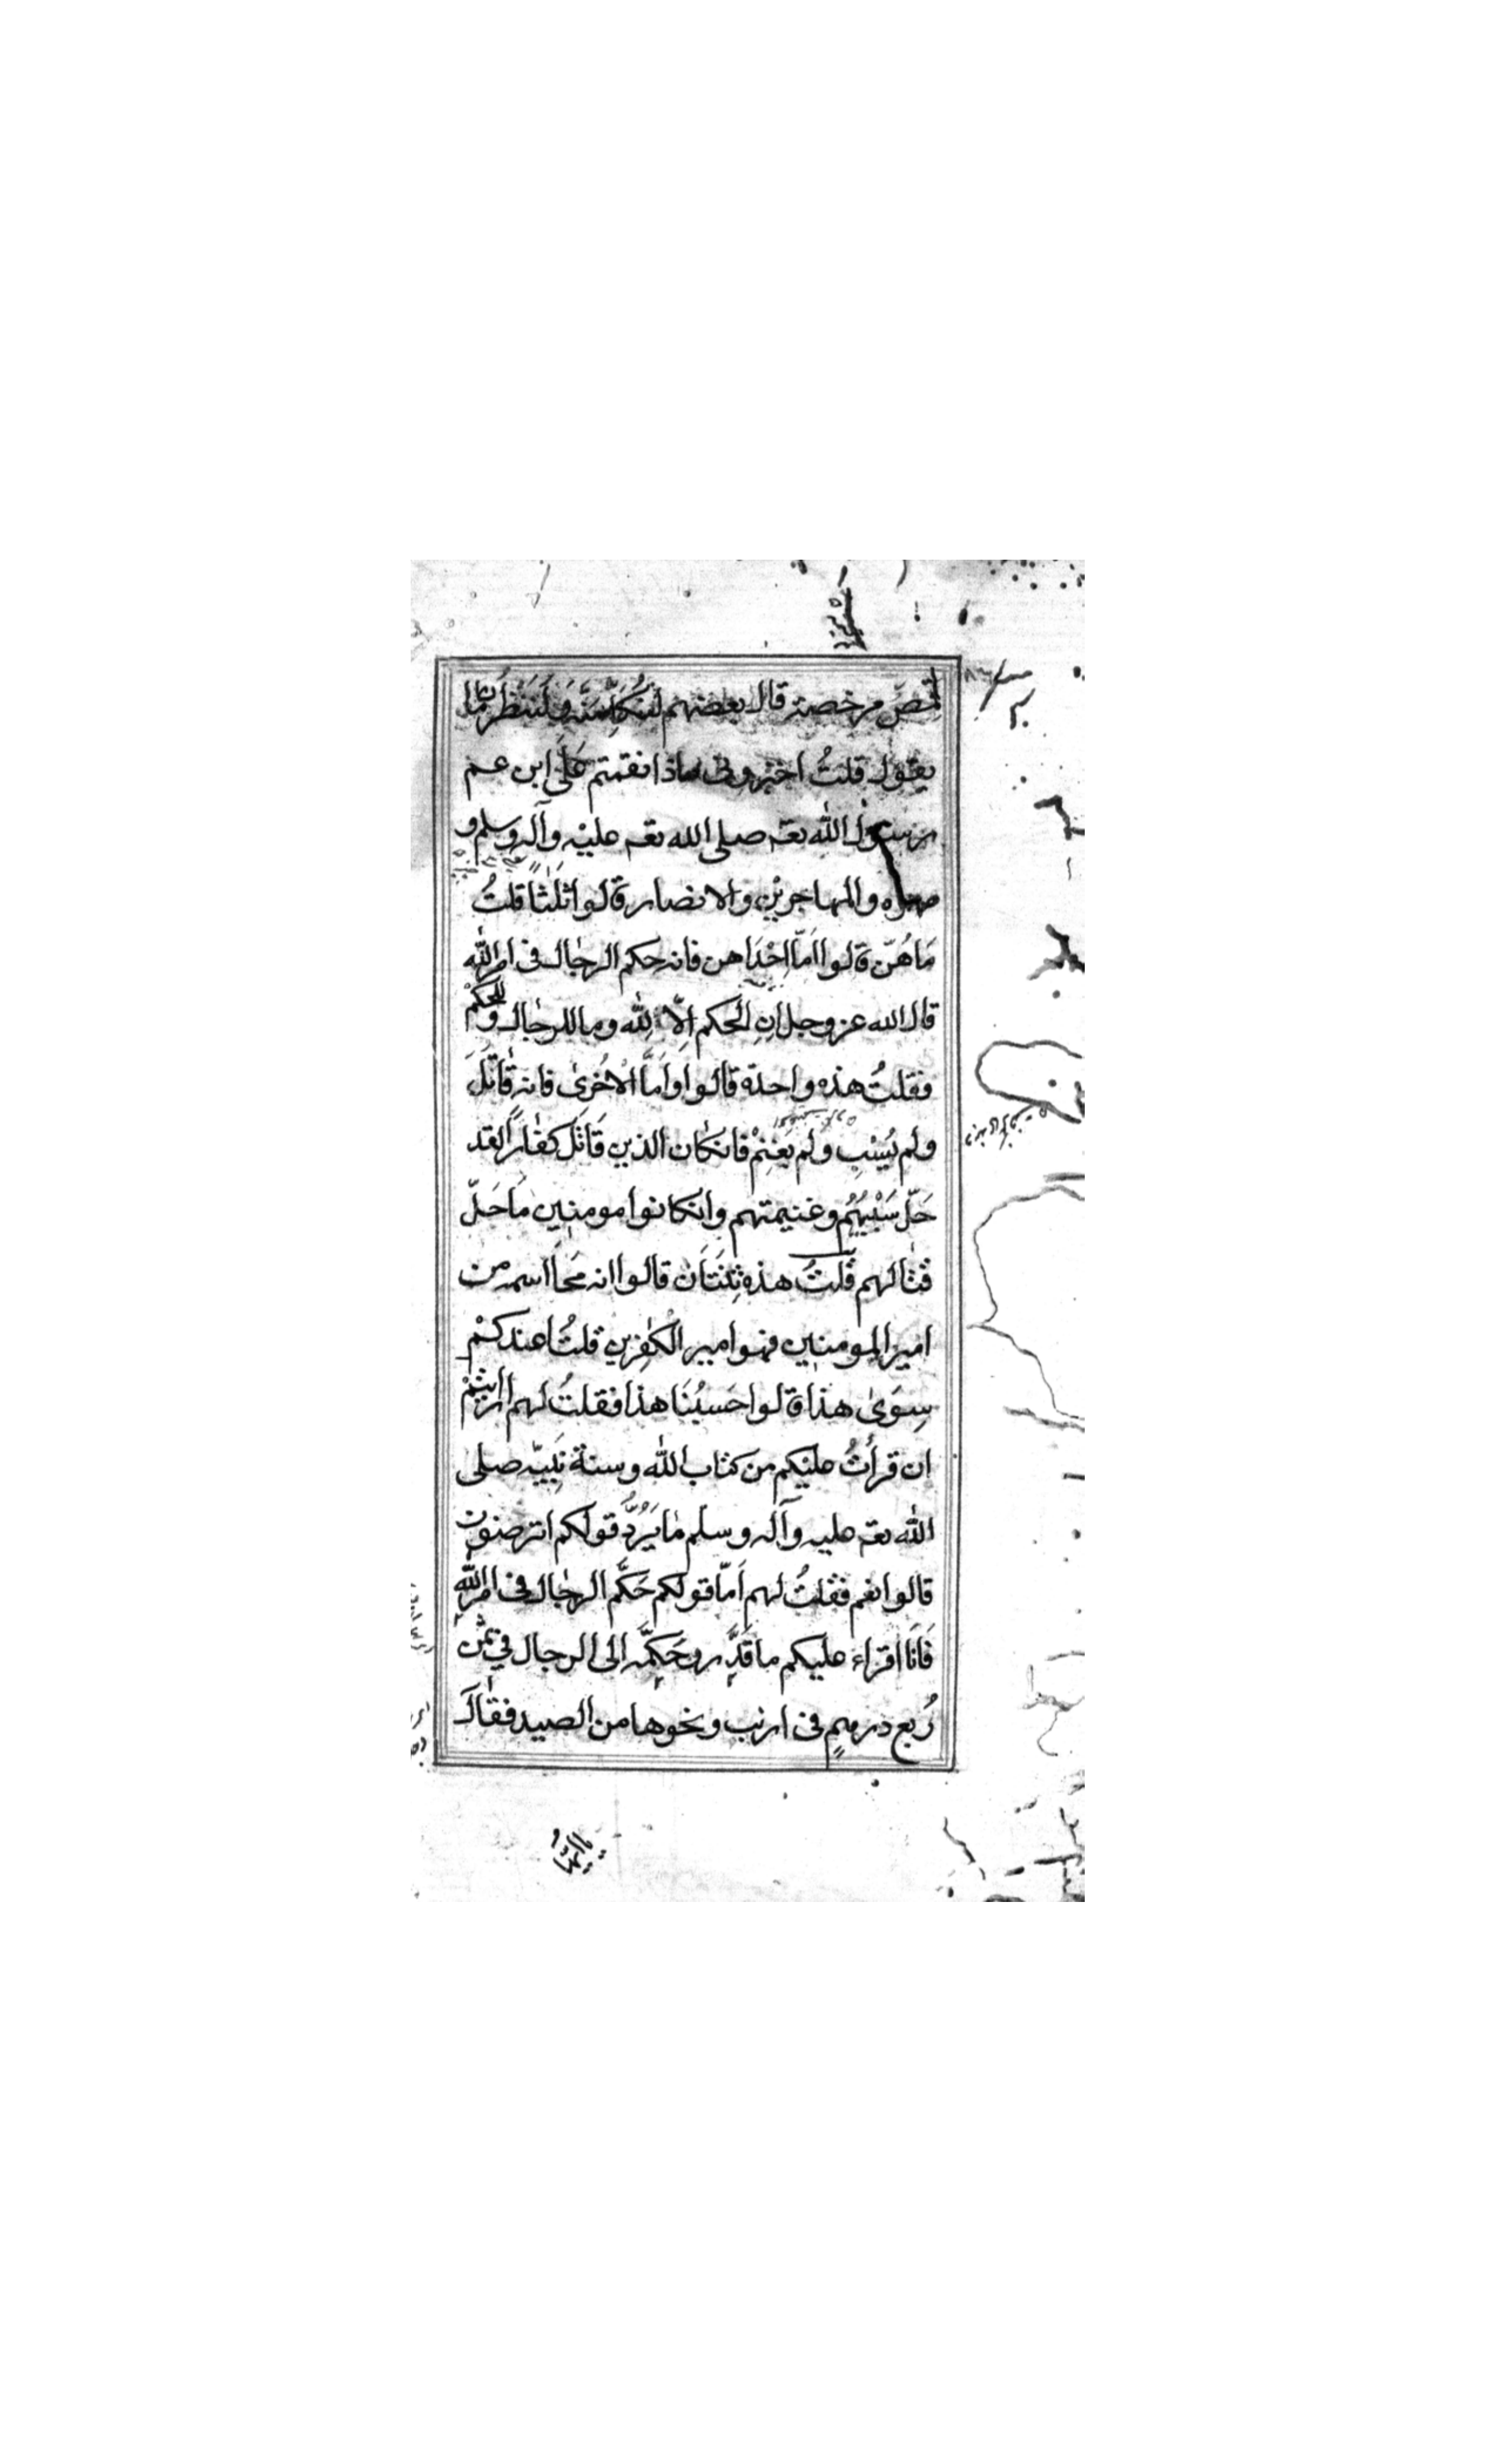 قال بعضهم لنُكَلِّمَنَّه ولننظرن ما
يقول قلتُ اخبرونى ماذا نقمتم عَلَى ابن عم
رسول الله تعہ صلى الله تعہ عليْہ وآلہ وسلم و
صهره والمهاجريْن والانصار قالوا ثلٰثًا قلتُ
مَا هُنّ قالوا اَمّا اِحْدَاهن فانہ حكم الرجال فى امر الله
قال الله عز وجل اِنِ الْحكم اِلّا لِلّٰه وما للرجال و للحكم
فقلتُ هذه واحدة قالوا وَاَمَّا الْاُخْرىٰ فانہ قَاتَلَ
ولم يُسْبِ ولم يَغْنِمْ فانكان الذين قَاتَل كفّارًا لقد
حَلّ سَبْيُهُم وغنيمتهم وانكانوا مومنين مَا حَلّ
قتالهم قلتُ هذه ثِنْتَان قالوا انہ مَحَا اسمہ من
امير المومنين فهو امير الكٰفرين قلتُ اعندكمْ
سِوَىٰ هذا قالوا حَسبُنَا هذا فقلتُ لهم ارايتمْ
ان قرأتُ عليكم من كتاب الله وسنة نَبِيّہ صلى
الله تعہ عليہ وآلہ وسلم مَا يَرُدُّ قولكم اترضون
قالوا نعم فقلتُ لهم اَمّا قولكم حَكَّم الرجال فى امر الله
فَاَنَا اقراء عليكم ما قد رد حَكمَہ الى الرجال فى ثمن
رُبع درهمٍ فى ارنب ونحوها من الصيد فقال